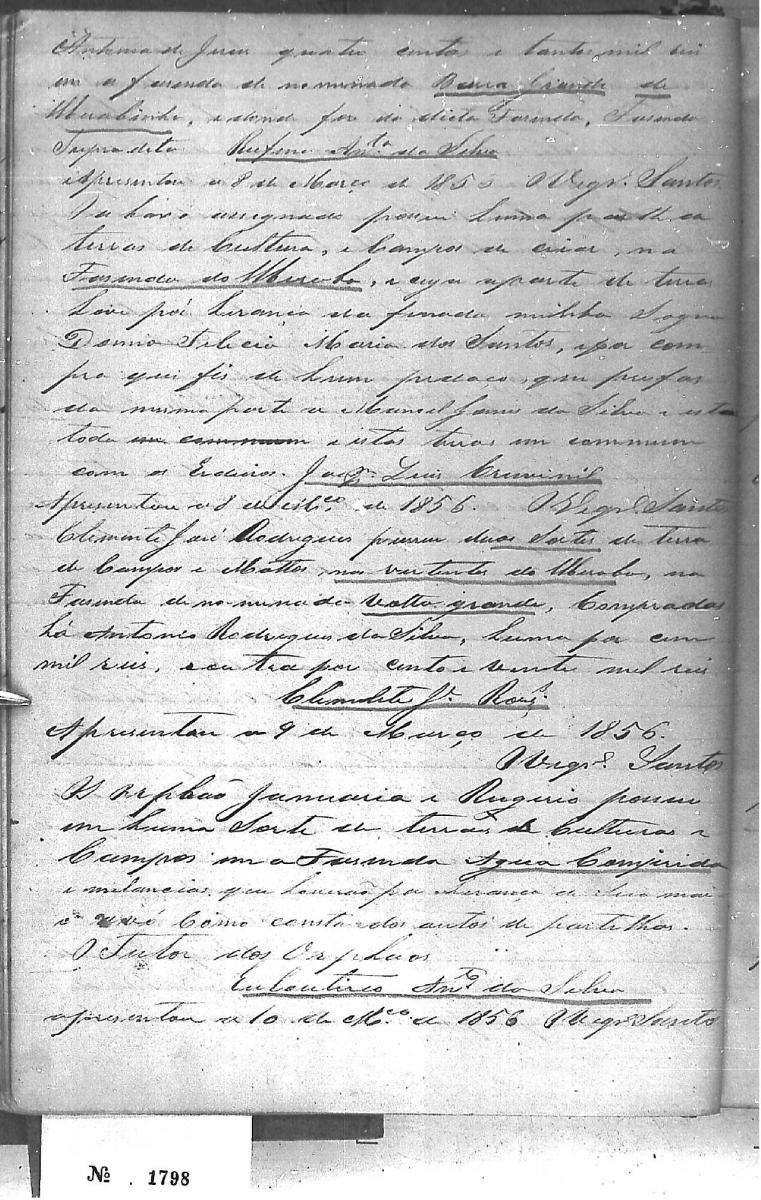 Antonio de Jesus quatro centos e tantos mil reis
em a fasenda de no minada Barra Grande de
Mirabinho, e donde for da dicta Fasenda, Fasenda
Supra dita Rufino Antº da Silva
Apresentou a 8 de Março de 1856 Vigrº Santos
O abaxo assignado possui huma parte de
terras de Cultura, e Campos de criar, na
Fasenda do Miraba, e cuja aparte de terra
hove pôr herança da finada minha Sogra
Donna Felicia Maria dos Santos, e por com
pra que fis de hum pedaço, que
da mesma parte a Manoel da Silva e esta
toda em commum e estas terras em commum
com os Erdeiros. Joaqm Luis Cruvinil
Apresentou a 8 de de 1856. Vigrº Santos
Clemente José Rodrigues possui duas Sortes de terra
de Campos e Mattos, na vertente do Miraba, na
Fasenda de no minada Volta grande, Compradas
há Antonio Rodrigues da Silva, huma por cem
mil reis, e outra por cento e vente mil reis
Clemente Je Roiz
Apresentou a 9 de Março de 1856.
Vigrº Santos
Os Orphaõ Januaria e Rugerio possu
em huma Sorte de terras de Culturas e
Campos em a Fasenda Agua Comprida
e melancias que houverão por herança de Sua mai
e avó Como consta dos autos de partilhas.
O Tutor dos Orphaos
Antº da Silva
apresentou a 10 de Mço de 1856 Vigrº Santos
Nº . 1798